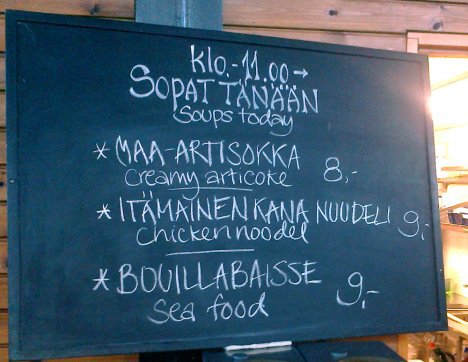 klo.-11.00→
SOPAT TÄNÄÄN
Soups today
* MAA-ARTISOKKA 8,-
Creamy articoke
* ITÄMAINEN KANA NUUDELI 9,-
Chicken noodel
* BOUILLABAISSE
Sea food 9,-